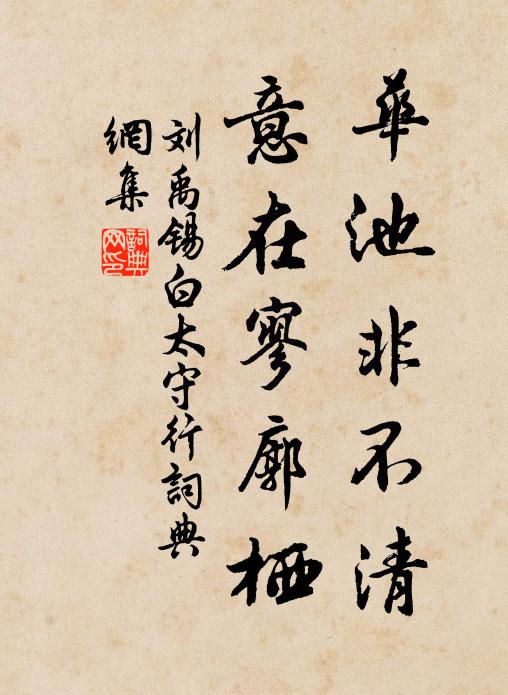 華池非不清
意在寥廓栖
刘禹锡白太守行詞典
網集
詞典
网印